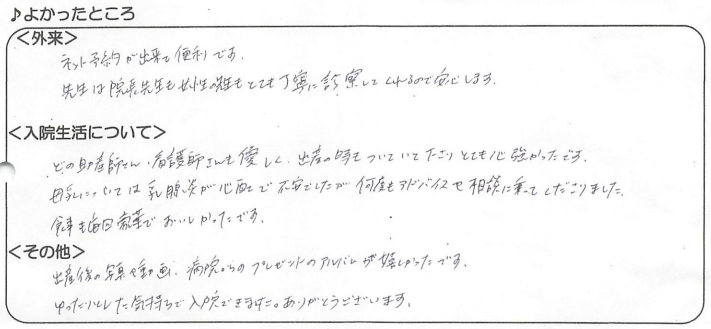 ♪よかったところ
<外来>
ネット予約が出来て便利です。
先生は院長先生も女性の先生もとても丁寧に診察してくれるので安心します。
<入院生活について>
どの助産師さん、看護師さんも優しく、出産の時もついていて下さりとても心強かったです。
母乳については乳腺炎が心配で不安でしたが何度もアドバイスや相談に乗ってくださりました。
食事も毎回豪華でおいしかったです。
<その他>
出産後の写真や動画、病院からのプレゼントのアルバムが嬉しかったです。
ゆったりとした気持ちで入院できました。ありがとうございます。